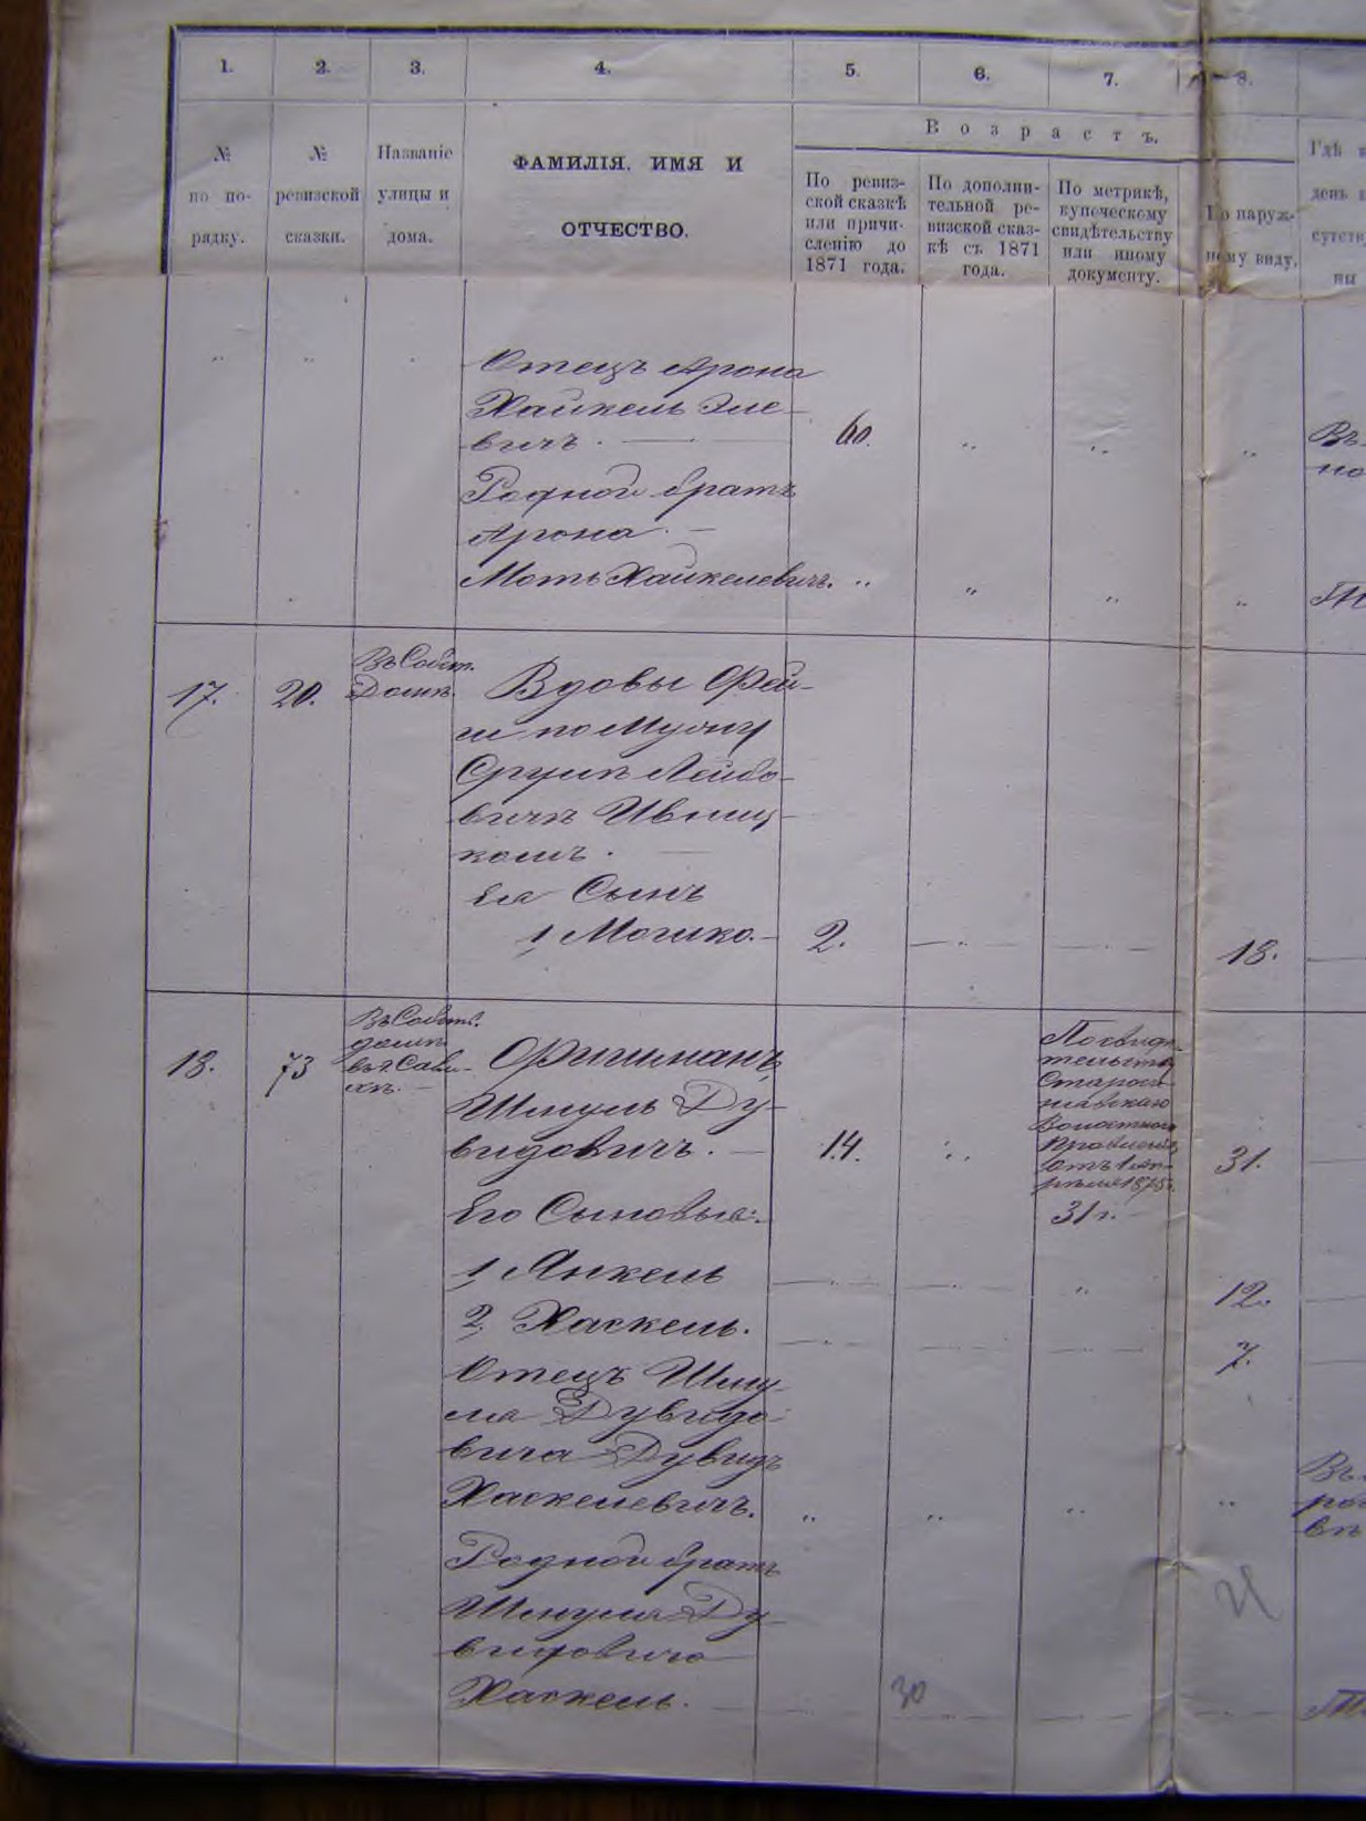 1. 2. 3. 4. 5. 6. 7. 8.
Возрастъ.
№ по по-рядку.
№ ревизской сказки.
Названіе улицы и дома.
ФАМИЛІЯ, ИМЯ И
ОТЧЕСТВО.
По ревиз-
ской сказкѣ
или причи-
сленію до
1871 года.
По дополни-
тельной ре-
визской сказ-
кѣ съ 1871
года.
По метрикѣ,
купеческому
свидѣтельству
или иному
документу.
По наруж-
ному виду.
Гдѣ
день
сутств
ны
Отецъ Арона
Хайкель Эле-
вичъ. 60.
Въ
но
Родной братъ
Арона
Моть Хайкелевичъ.
17. 20. Въ Собст.
Домѣ.
Вдовы Фей-
ги по Мужу
Срулѣ Лейбо-
вичѣ Ивниц-
комъ.
Ея Сынъ
1, Мошко. 2. 18.
18. 73 Въ Собств.
домѣ
Фишманъ,
Шмуль Ду-
видовичъ. 14. 31.
По свидѣ-
тельству
Волостнаго
Правленія
отъ 1 ап-
рѣля 1875 г.
31 г.
Его Сыновья:
1, Янкель 12.
2, Хаскель. 7.
Отецъ Шму-
ля Дувидо-
вича Дувидъ
Хаскелевичъ.
Въ
вѣ
Родной братъ
Шмуля Ду-
видовича
Хаскель.
30